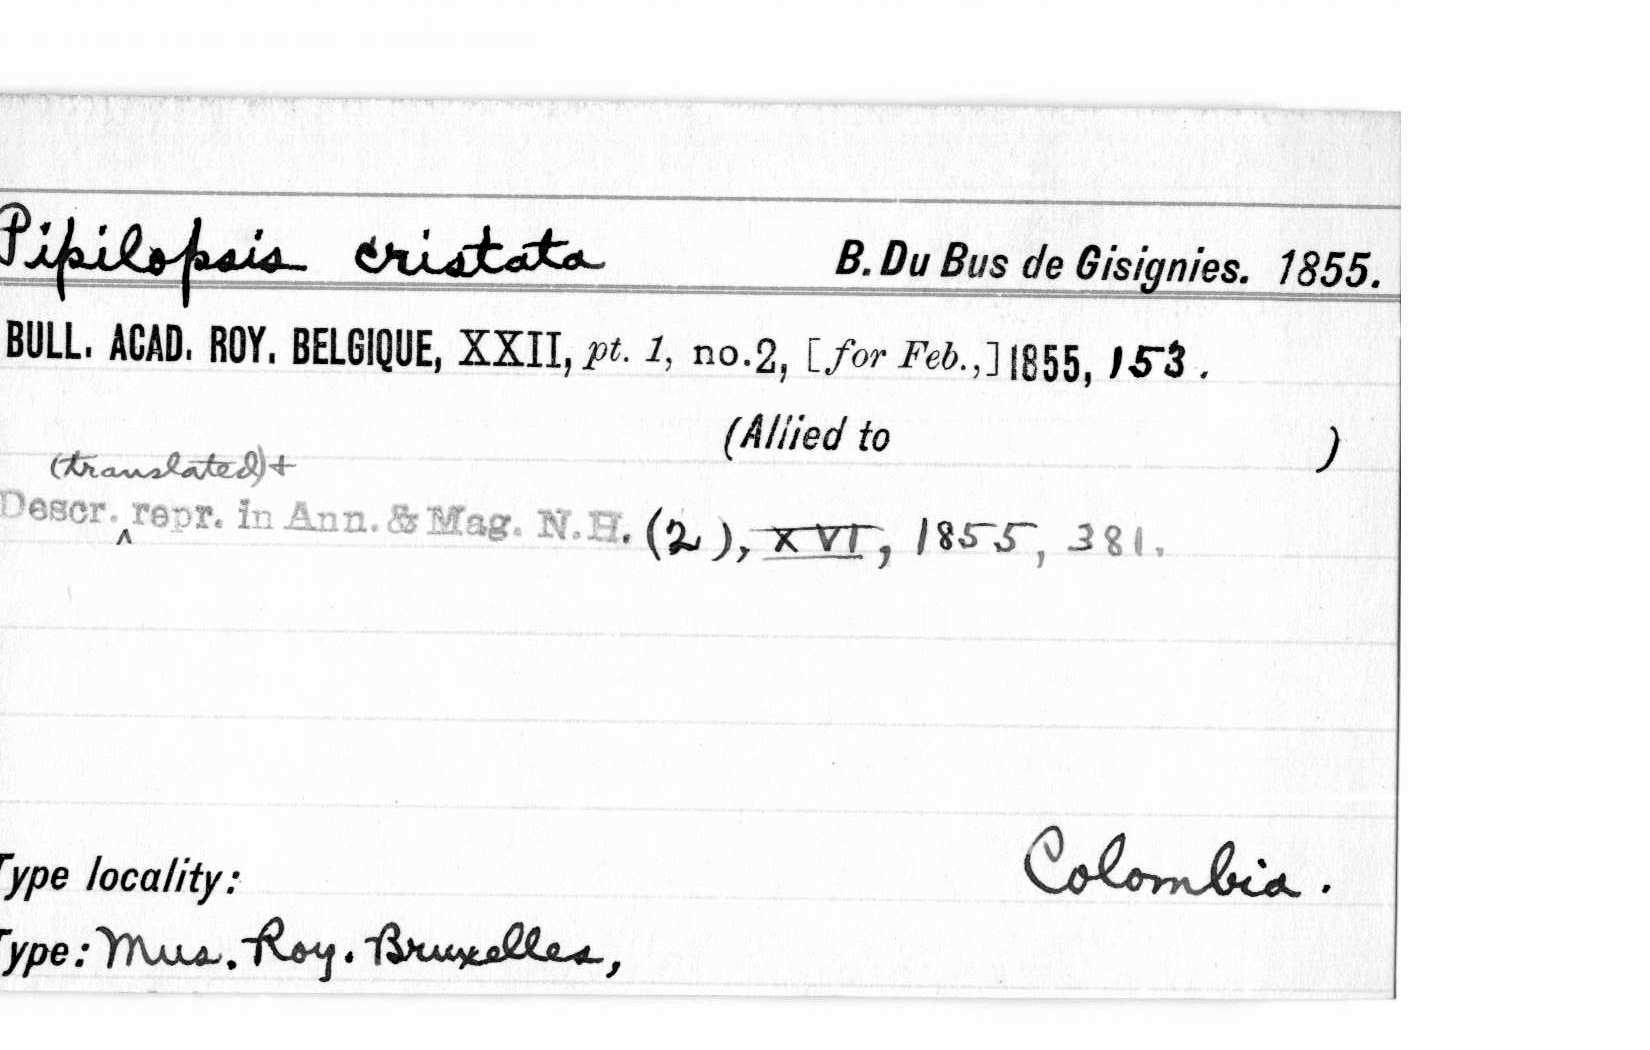 Pipilopsis cristata B. Du Bus de Gisignies. 1855.
BULL. ACAD. ROY. BELGIQUE, XXII, pt. 1, no. 2, [for Feb.,] 1855, 153.
(Allied to )
(translated) +
Descr. ^ repr. in Ann. & Mag. N.H. (2), XVI, 1855, 381.
Type locality: Colombia.
Type: Mus. Roy. Bruxelles,